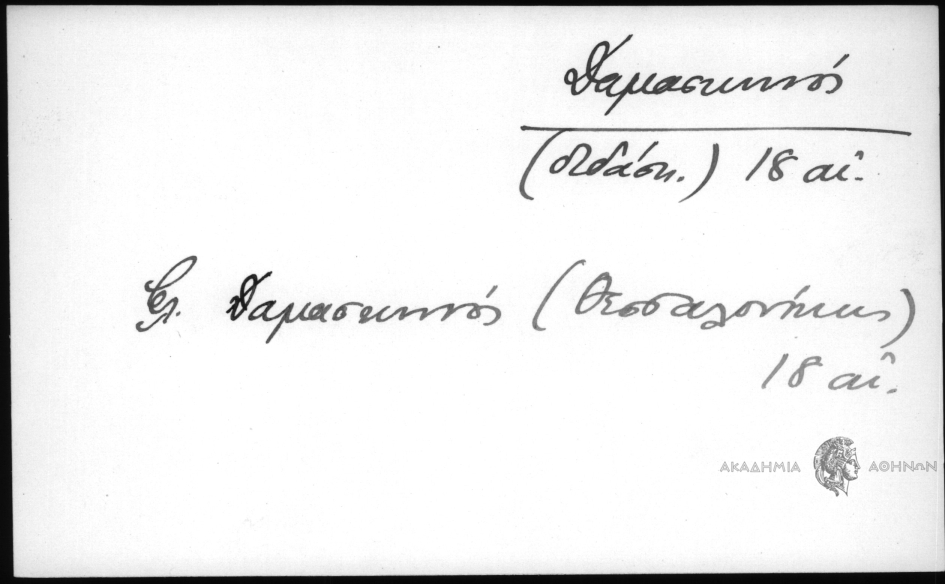 Δαμασκηνός
(διδάσκ.) 18 αἰ.
βλ. Δαμασκηνός (Θεσσαλονίκης)
18 αἰ.
ΑΚΑΔΗΜΙΑ ΑΘΗΝΩΝ